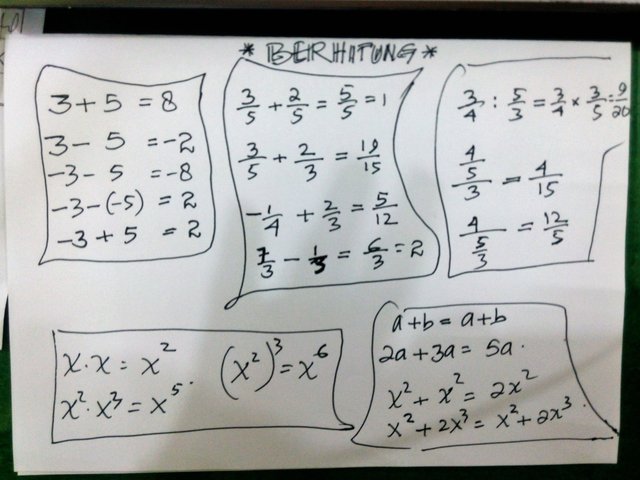 * BERHITUNG *
3 + 5 = 8
3 - 5 = -2
-3 - 5 = -8
-3 - (-5) = 2
-3 + 5 = 2
3/5 + 2/5 = 5/5 = 1
3/5 + 2/3 = 19/15
-1/4 + 2/3 = 5/12
7/3 - 1/3 = 6/3 = 2
3/4 : 5/3 = 3/4 × 3/5 = 9/20
4/5/3 = 4/15
4/5/3 = 12/5
x·x = x²
x²·x³ = x⁵.
(x²)³ = x⁶
a+b = a+b
2a + 3a = 5a.
x² + x² = 2x²
x² + 2x³ = x² + 2x³.